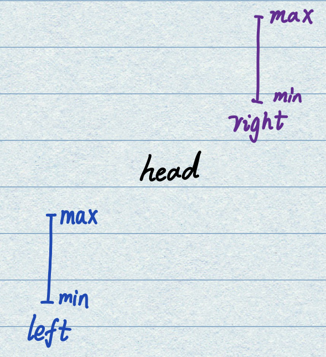 max
min
right
head
max
min
left